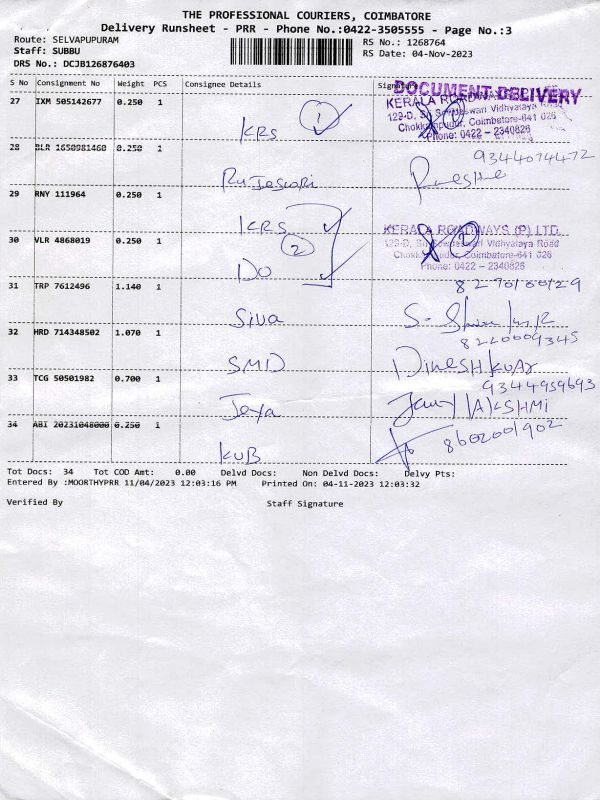 THE PROFESSIONAL COURIERS, COIMBATORE
Delivery Runsheet - PRR - Phone No.:0422-3505555 - Page No.:3
Route: SELVAPUPURAM
RS No.: 1268764
Staff: SUBBU
RS Date: 04-Nov-2023
DRS No.: DCJB126876403
S No Consignment No Weight PCS Consignee Details Signature
DOCUMENT DELIVERY
27 IXM 505142677 0.250 1
KERALA ROADWAYS (P) LTD.
Coimbatore-641 026
Phone: 0422 – 2340826
KRS 1
28 BLR 1650981460 0.250 1
9344074472
29 RNY 111964 0.250 1
KRS
KERALA ROADWAYS (P) LTD.
30 VLR 4868019 0.250 1
2
Coimbatore-641 026
Phone: 0422 – 2340826
DO
31 TRP 7612496 1.140 1
Siva
32 HRD 714348502 1.070 1
8220009345
SMD DINESH KUAR
33 TCG 50501982 0.700 1
9344959693
Jeya
34 ABI 20231048000 0.250 1
8602001902
KUB
Tot Docs: 34 Tot COD Amt: 0.00 Delvd Docs: Non Delvd Docs: Delvy Pts:
Entered By :MOORTHYPRR 11/04/2023 12:03:16 PM Printed On: 04-11-2023 12:03:32
Verified By Staff Signature